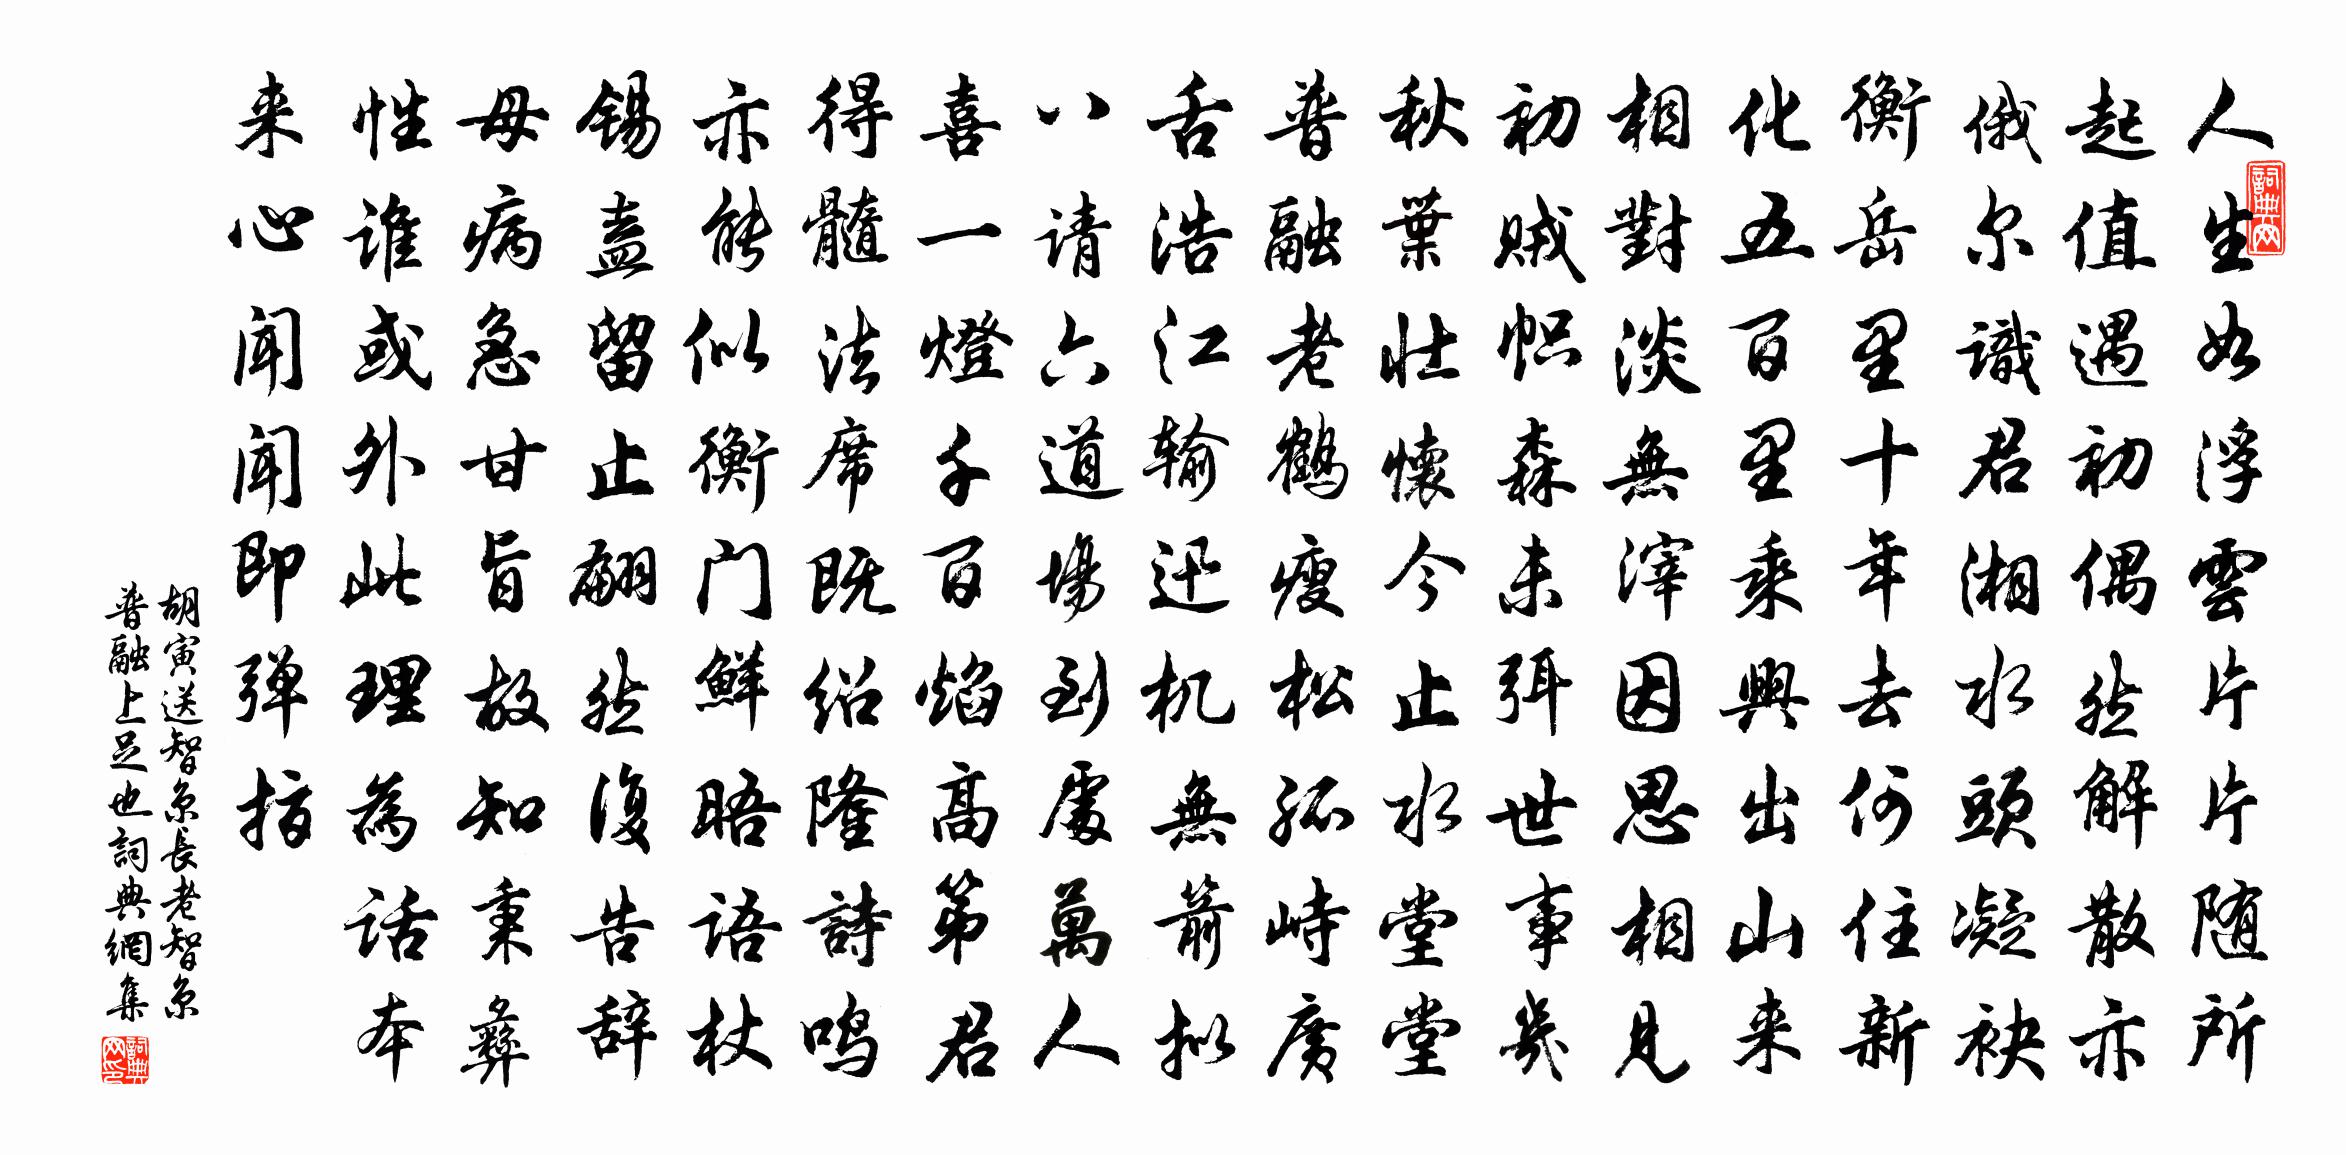 人生如浮雲片片随所
起值遇初偶然解散亦
俄尔識君湘水頭凝袂
衡岳里十年去何住新
化五百里乘興出山来
相對淡無滓因思相見
初賊帜森未弭世事幾
秋葉壮懷今止水堂堂
普融老鶴瘦松孤峙廣
舌浩江输迅机無箭拟
八请六道場到處萬人
喜一燈千百焰高第君
得髓法席既绍隆詩鸣
亦能似衡门鲜晤语杖
锡盍留止翩然復告辞
母病急甘旨故知秉彝
性谁或外此理為话本
来心闻闻即弹指
胡寅送智京長老智京
普融上足也詞典網集
詞典网
詞典网印